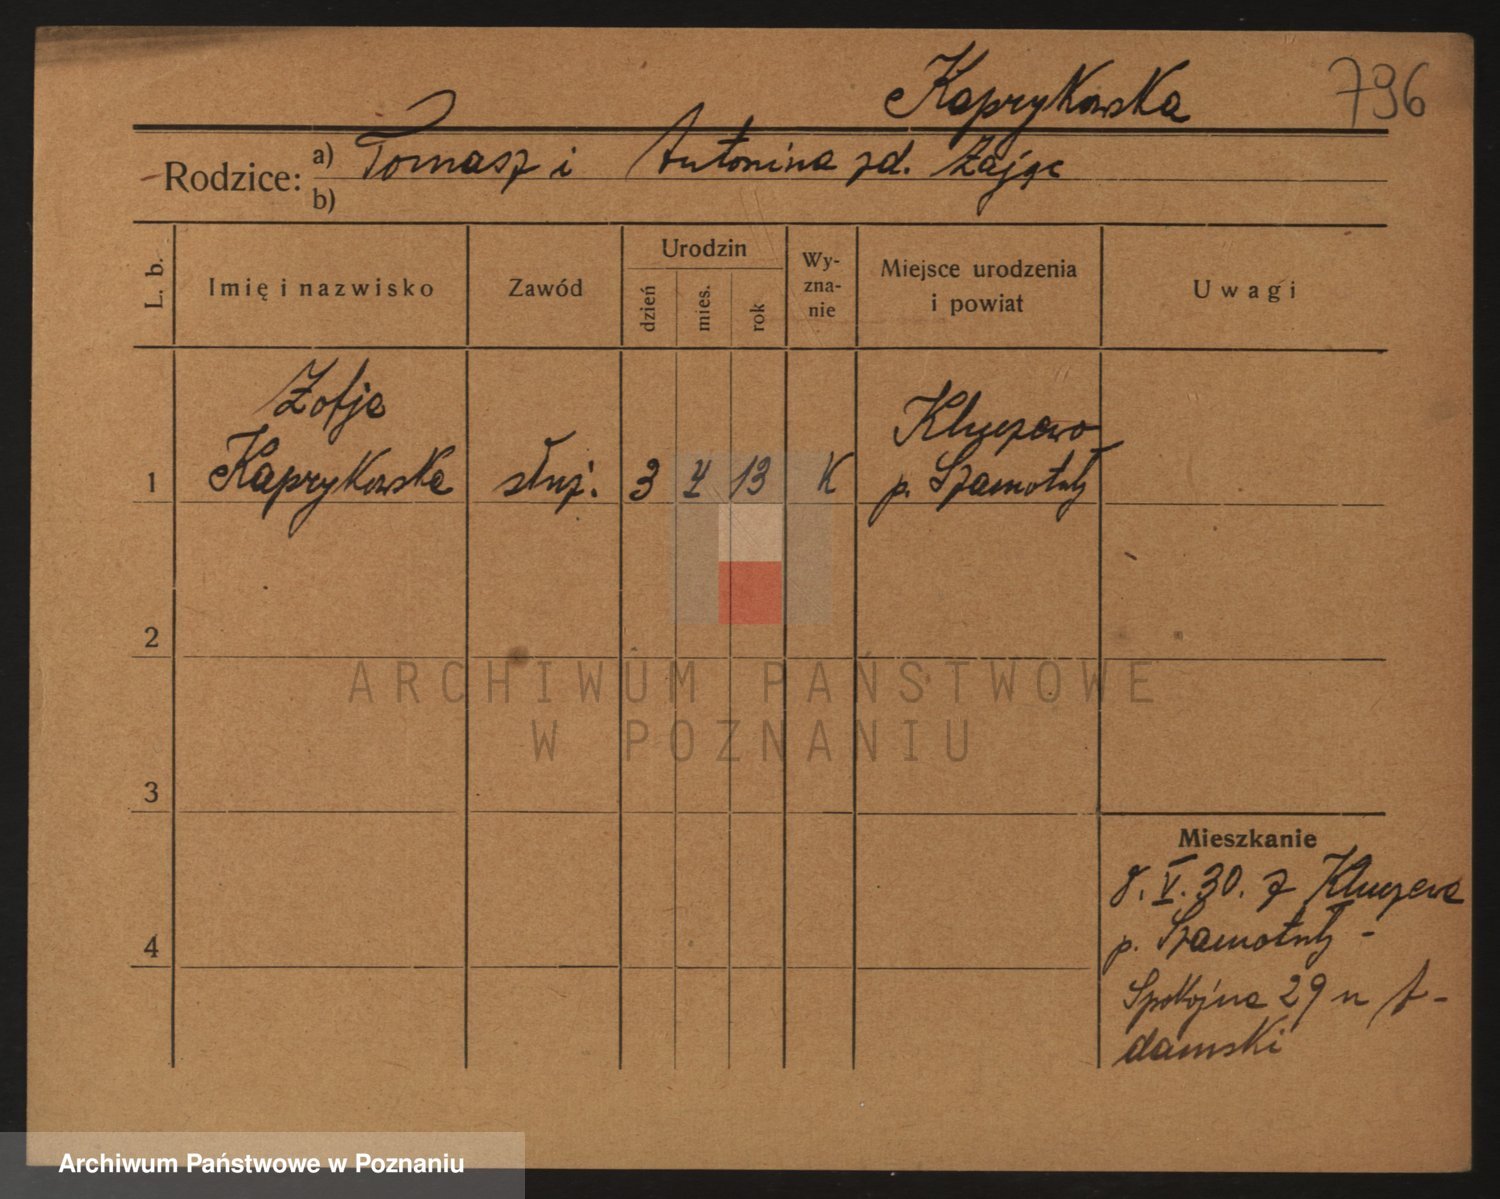 Kaprykowska
796
Rodzice:
a) Tomasz i Antonina zd. Zając
b)
L. b.
Imię i nazwisko
Zawód
Urodzin
dzień
mies.
rok
Wy-
zna-
nie
Miejsce urodzenia
i powiat
Uwagi
Zofja
Kluczewo
1 Kaprykowska służ. 3 4 13 K p. Szamotuły
2
3
4
Mieszkanie
8. V. 30. z Kluczewa
p. Szamotuły -
Spokojna 29 u A-
damski
ARCHIWUM PAŃSTWOWE
W POZNANIU
Archiwum Państwowe w Poznaniu